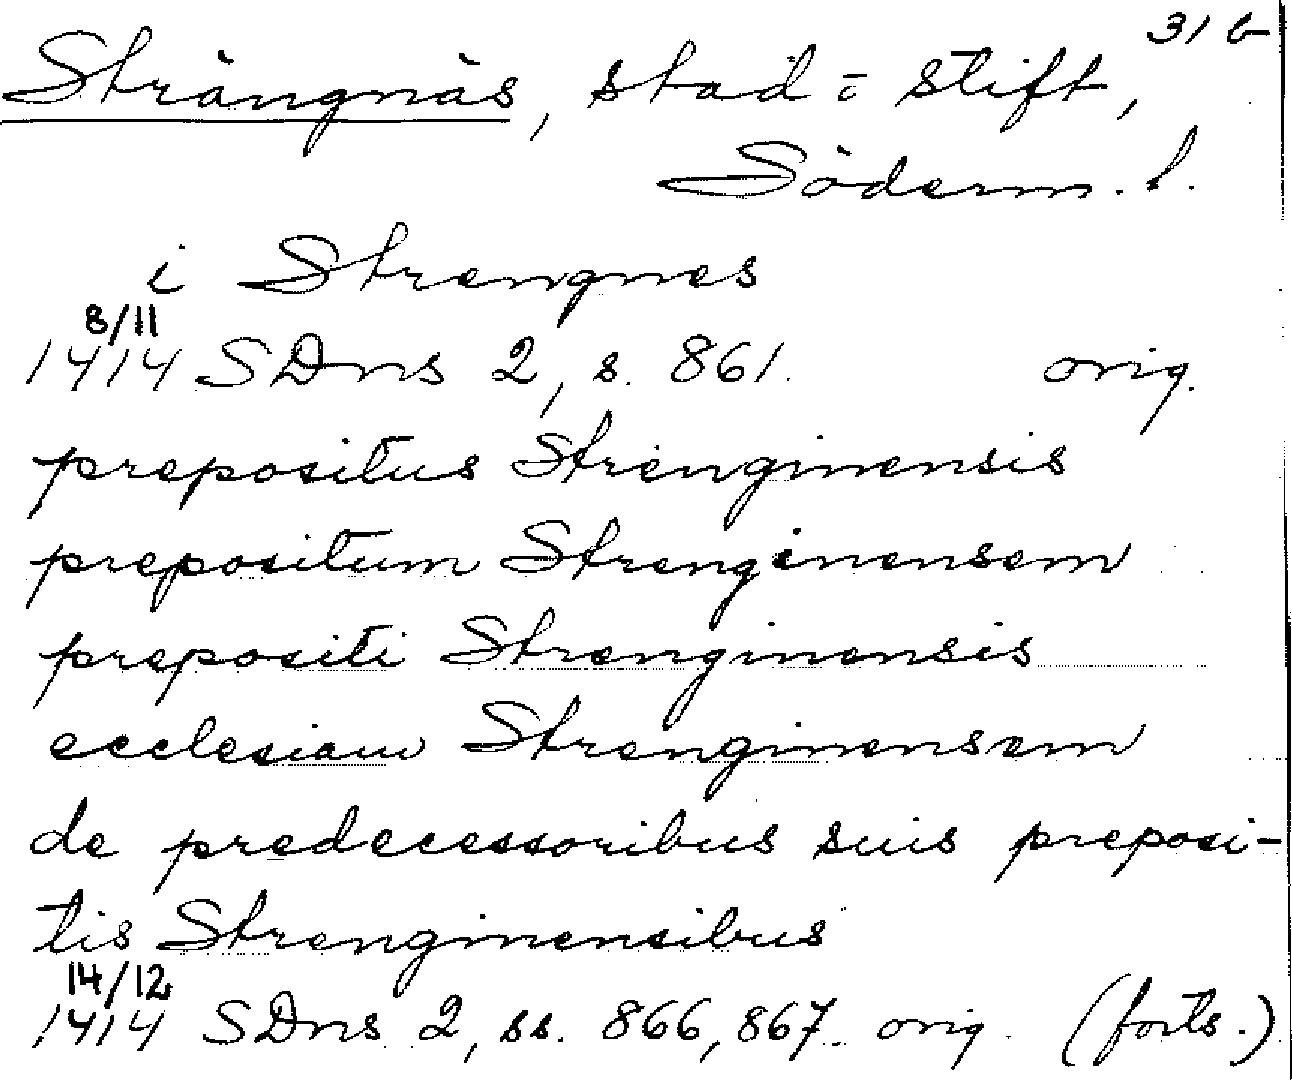 31 b
Strängnäs, stad o stift,
Söderm. l.
i Strengnes
8/11
1414 SDns 2, s. 861. orig.
prepositus Strenginensis
prepositum Strenginensem
prepositi Strenginensis
ecclesiam Strenginensem
de predecessoribus suis preposi-
tis Strenginensibus
14/12
1414 SDns 2, ss. 866, 867. orig. (forts.)